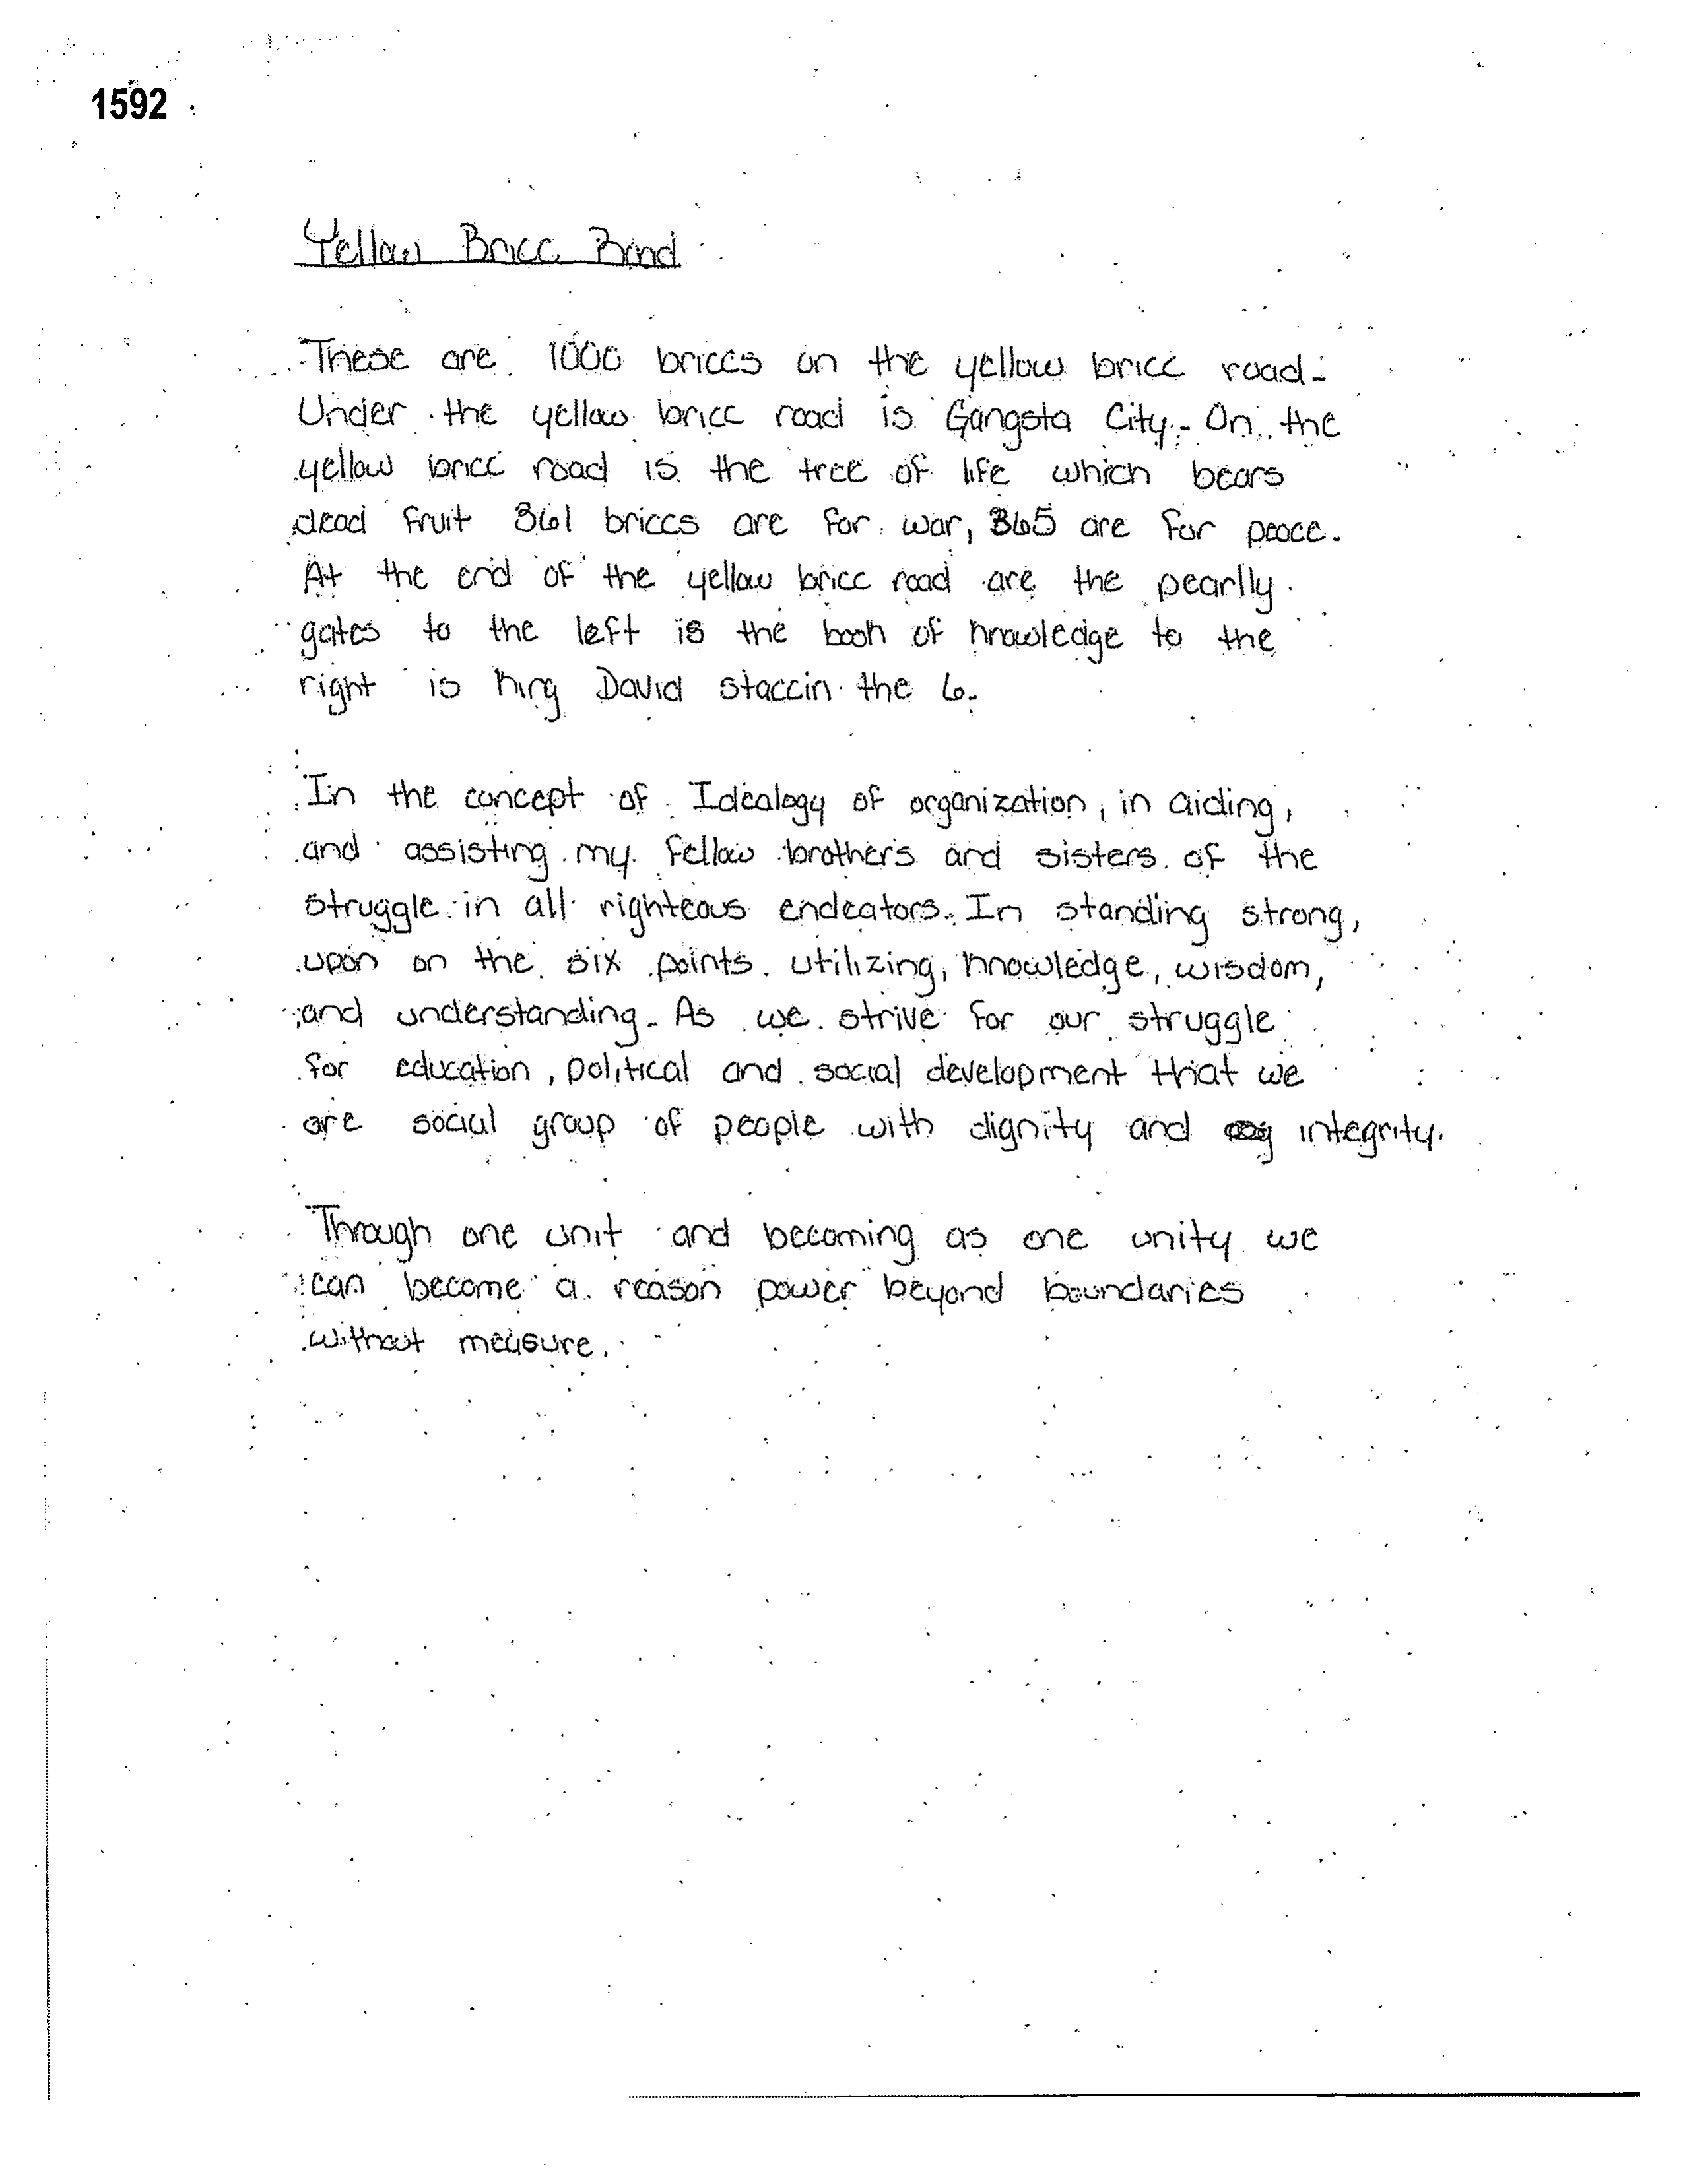 1592
Yellow Bricc Road
These are 1000 briccs on the yellow bricc road.
Under the yellow bricc road is Gangsta City. On the
yellow bricc road is the tree of life which bears
dead fruit 361 briccs are for war, 365 are for peace.
At the end of the yellow bricc road are the pearlly
gates to the left is the book of knowledge to the
right is king David staccin the 6.
In the concept of Idealogy of organization, in aiding,
and assisting my fellow brothers and sisters of the
struggle in all righteous endeators. In standing strong,
upon on the six points utilizing, knowledge, wisdom,
and understanding. As we strive for our struggle
for education, political and social development that we
are social group of people with dignity and integrity.
Through one unit and becoming as one unity we
can become a reason power beyond boundaries
without measure.